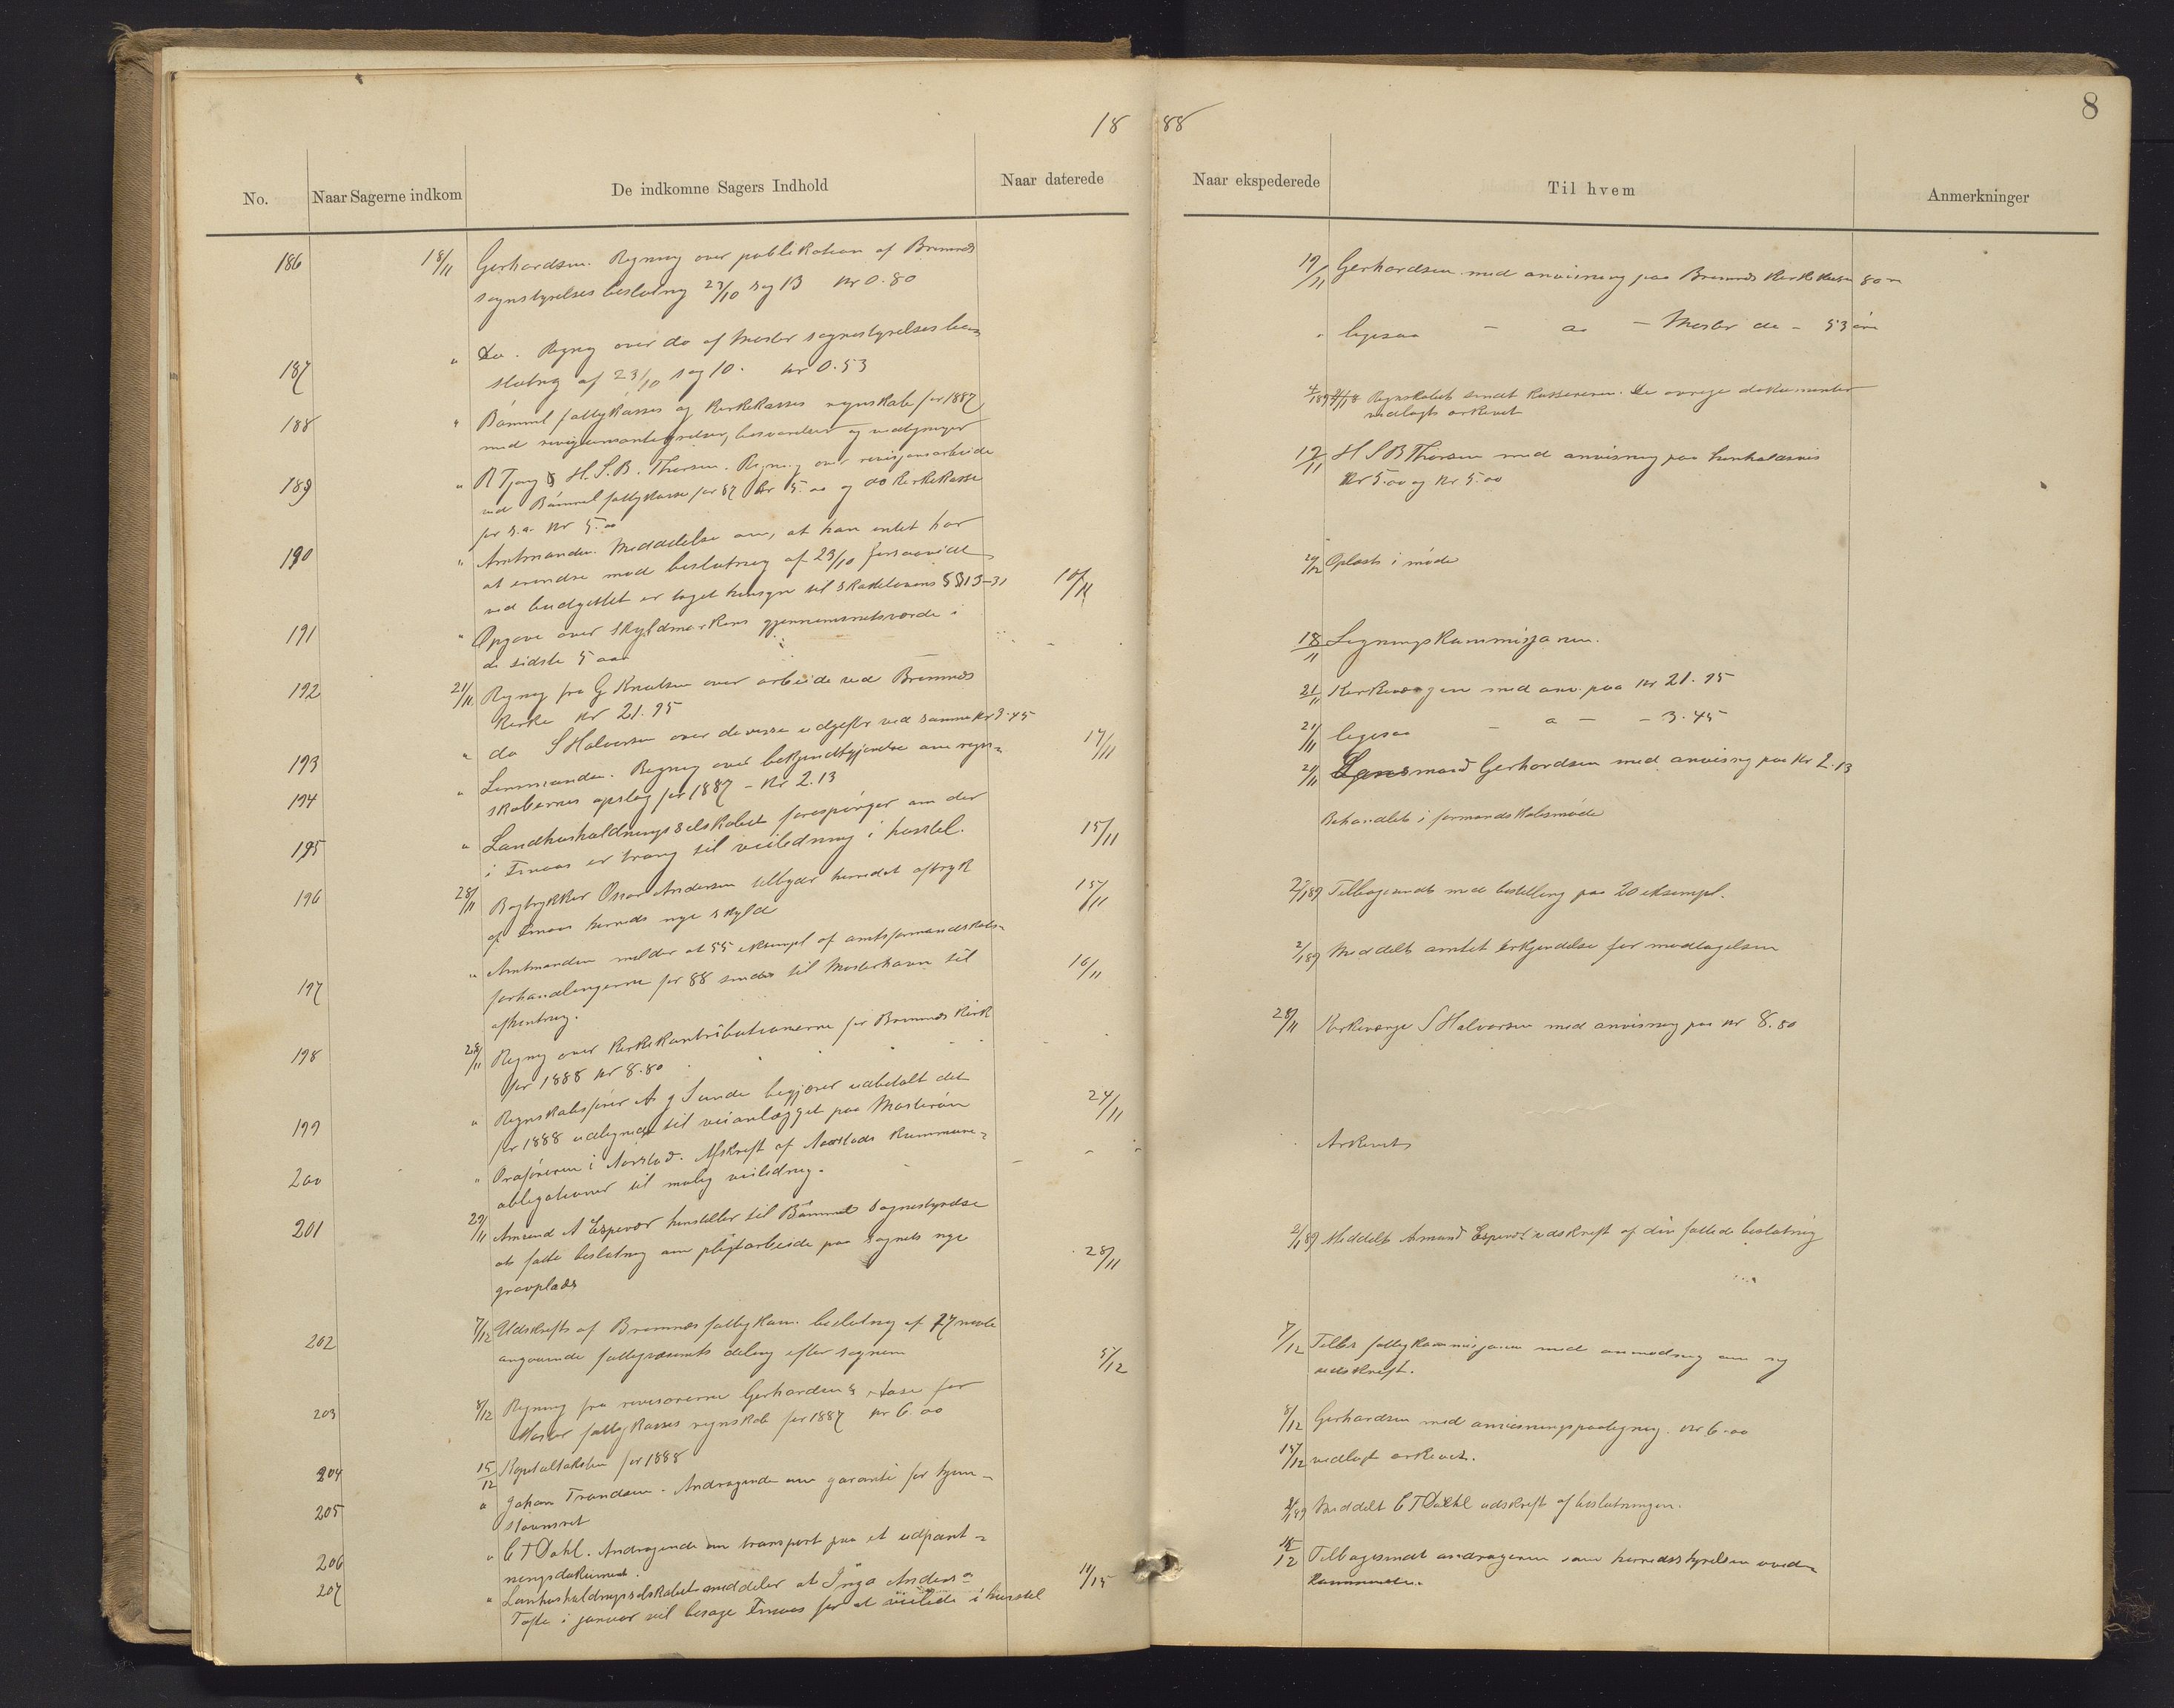 8
18 88
No. Naar Sagerne indkom De indkomne Sagers Indhold Naar daterede Naar ekspederede Til hvem Anmerkninger
186 18/11 Gerhardsen. Regning over publikation af Bremnes
sognstyrelses beslutning 23/10 sag 13 Kr 0.80
19/11 Gerhardsen med anvisning paa Bremnes Kirkekasse 80
187 " Do. Regng over do af Moster sognestyrelses bes
slutng af 23/10 sag 10. Kr 0.53
" ligesaa - - Moster do - 53 øre
188 " Bømmel fattigkasses og Kirkekasses regnskab for 1887
med revisionsantegnelser, besvarelser og
Regnskabet sendt Kassereren. De øvrige dokumenter
vedlagt arkivet
189 " R Tjong & H.S.B. Thorsen. Regning over revisjonsarbeide
ved Bømmel fattigkasse for 87 Kr 5.00 og do Kirkekasse
for s.a. Kr 5.00
19/11 H S B Thorsen med anvisning paa henholdsvis
Kr 5.00 og Kr 5.00
190 " Amtmanden. Meddelelse om, at han intet har
at erindre mod beslutning af 23/10 forsaavidt
ved budgettet er taget hensyn til skattelovens §§ 13-31
10/11
29/12 Oplæst i møde
191 " Opgave over Skyldmarkens gjennemsnitsværde i
de sidste 5 aar
18/11 Ligningskommissjonen.
192 21/11 Regning fra G Knutsen over arbeide ved Bremnes
Kirke Kr 21.95
21/11 Kirkevergen med anv. paa Kr 21.95
193 " do S Halvorsen over diverse udgifter ved samme Kr 3.45
21/11 ligesaa - - 3.45
194 " Lensmanden. Regning over bekjendtgjørelse om regn-
skabernes opslag for 1887 - Kr 2.13
17/11
21/11 Lensmand Gerhardsen med anvisng paa Kr 2.13
195 " Landhusholdningsselskabet forespørger om der
i Finaas er trang til veiledning i husstel.
15/11
Behandlet i formandskabsmøde
196 28/11 Bogtrykker Oscar Andersen tilbyder herredet aftryk
af Finaas herreds nye skyld
15/11
2/1 89 Tilbagesendt med bestilling paa 20 eksempl.
197 " Amtmanden melder at 55 eksempl af amtsformandskabs-
forhandlingerne for 88 sendes til Mosterhavn til
afhentning.
16/11
2/1 89 Meddelt amtet erkjendelse for modtagelsen
198 28/11 Regng over Kirkekontributionerne for Bremnes Kirke
for 1888 Kr 8.80
28/11 Kirkeverge S Halvorsen med anvisning paa Kr 8.80
199 " Regnskabsfører A g Sunde begjærer udbetalt det
for 1888 udlignede til veianlægget paa Mosterøen
24/11
200 " Ordføreren i Aarstad. Afskrift af Aarstads Kommune-
obligationer til mulig veiledng.
Arkivet
201 29/11 Amund A Espevær henstiller til Bømmel Sognestyrelse
at fatte beslutning om pligtarbeide paa sognets nye
gravplads
28/11
2/1 89 Meddelt Amund Espevær udskrift af den fattede beslutning
202 7/12 Udskrift af Bremnes fattigkom. beslutng af 27
angaaende fattigvæsenets deling efter sognene
5/12
7/12 Tilbs fattigkommisjonen med anmodning om ny
udskrift.
203 8/12 Regning fra revisorerne Gerhardsen & Aase for
Moster fattigkasses regnskab for 1887 Kr 6.00
8/12 Gerhardsen med anvisningspaategning. Kr 6.00
204 15/12 Kapitaltakster for 1888
15/12 vedlagt arkivet.
205 " Johan Trondsen. Andragende om garanti for
206 " C T Dahl. Andragende om transport paa et udpant-
ningsdokument.
Meddelt C T Dahl udskrift af beslutningen.
207 " Lanhusholdngsselskabet meddeler at Inga Anders
Tofte i januar vil besøge Finaas for at veilede i husstel
11/15
15/12 Tilbagesendt andrageren som herredsstyrelsen uved-
kommende.